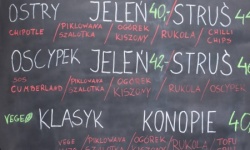 OSTRY JELEŃ 40,- STRUŚ
CHIPOTLE / PIKLOWANA SZALOTKA / OGÓREK KISZONY / RUKOLA / CHILLI CHIPS
OSCYPEK JELEŃ 42,- STRUŚ
SOS CUMBERLAND / PIKLOWANA SZALOTKA / OGÓREK KISZONY / RUKOLA / OSCYPEK
VEGE KLASYK KONOPIE 40
VEGE / PIKLOWANA / OGÓREK / RUKOLA / TOFU